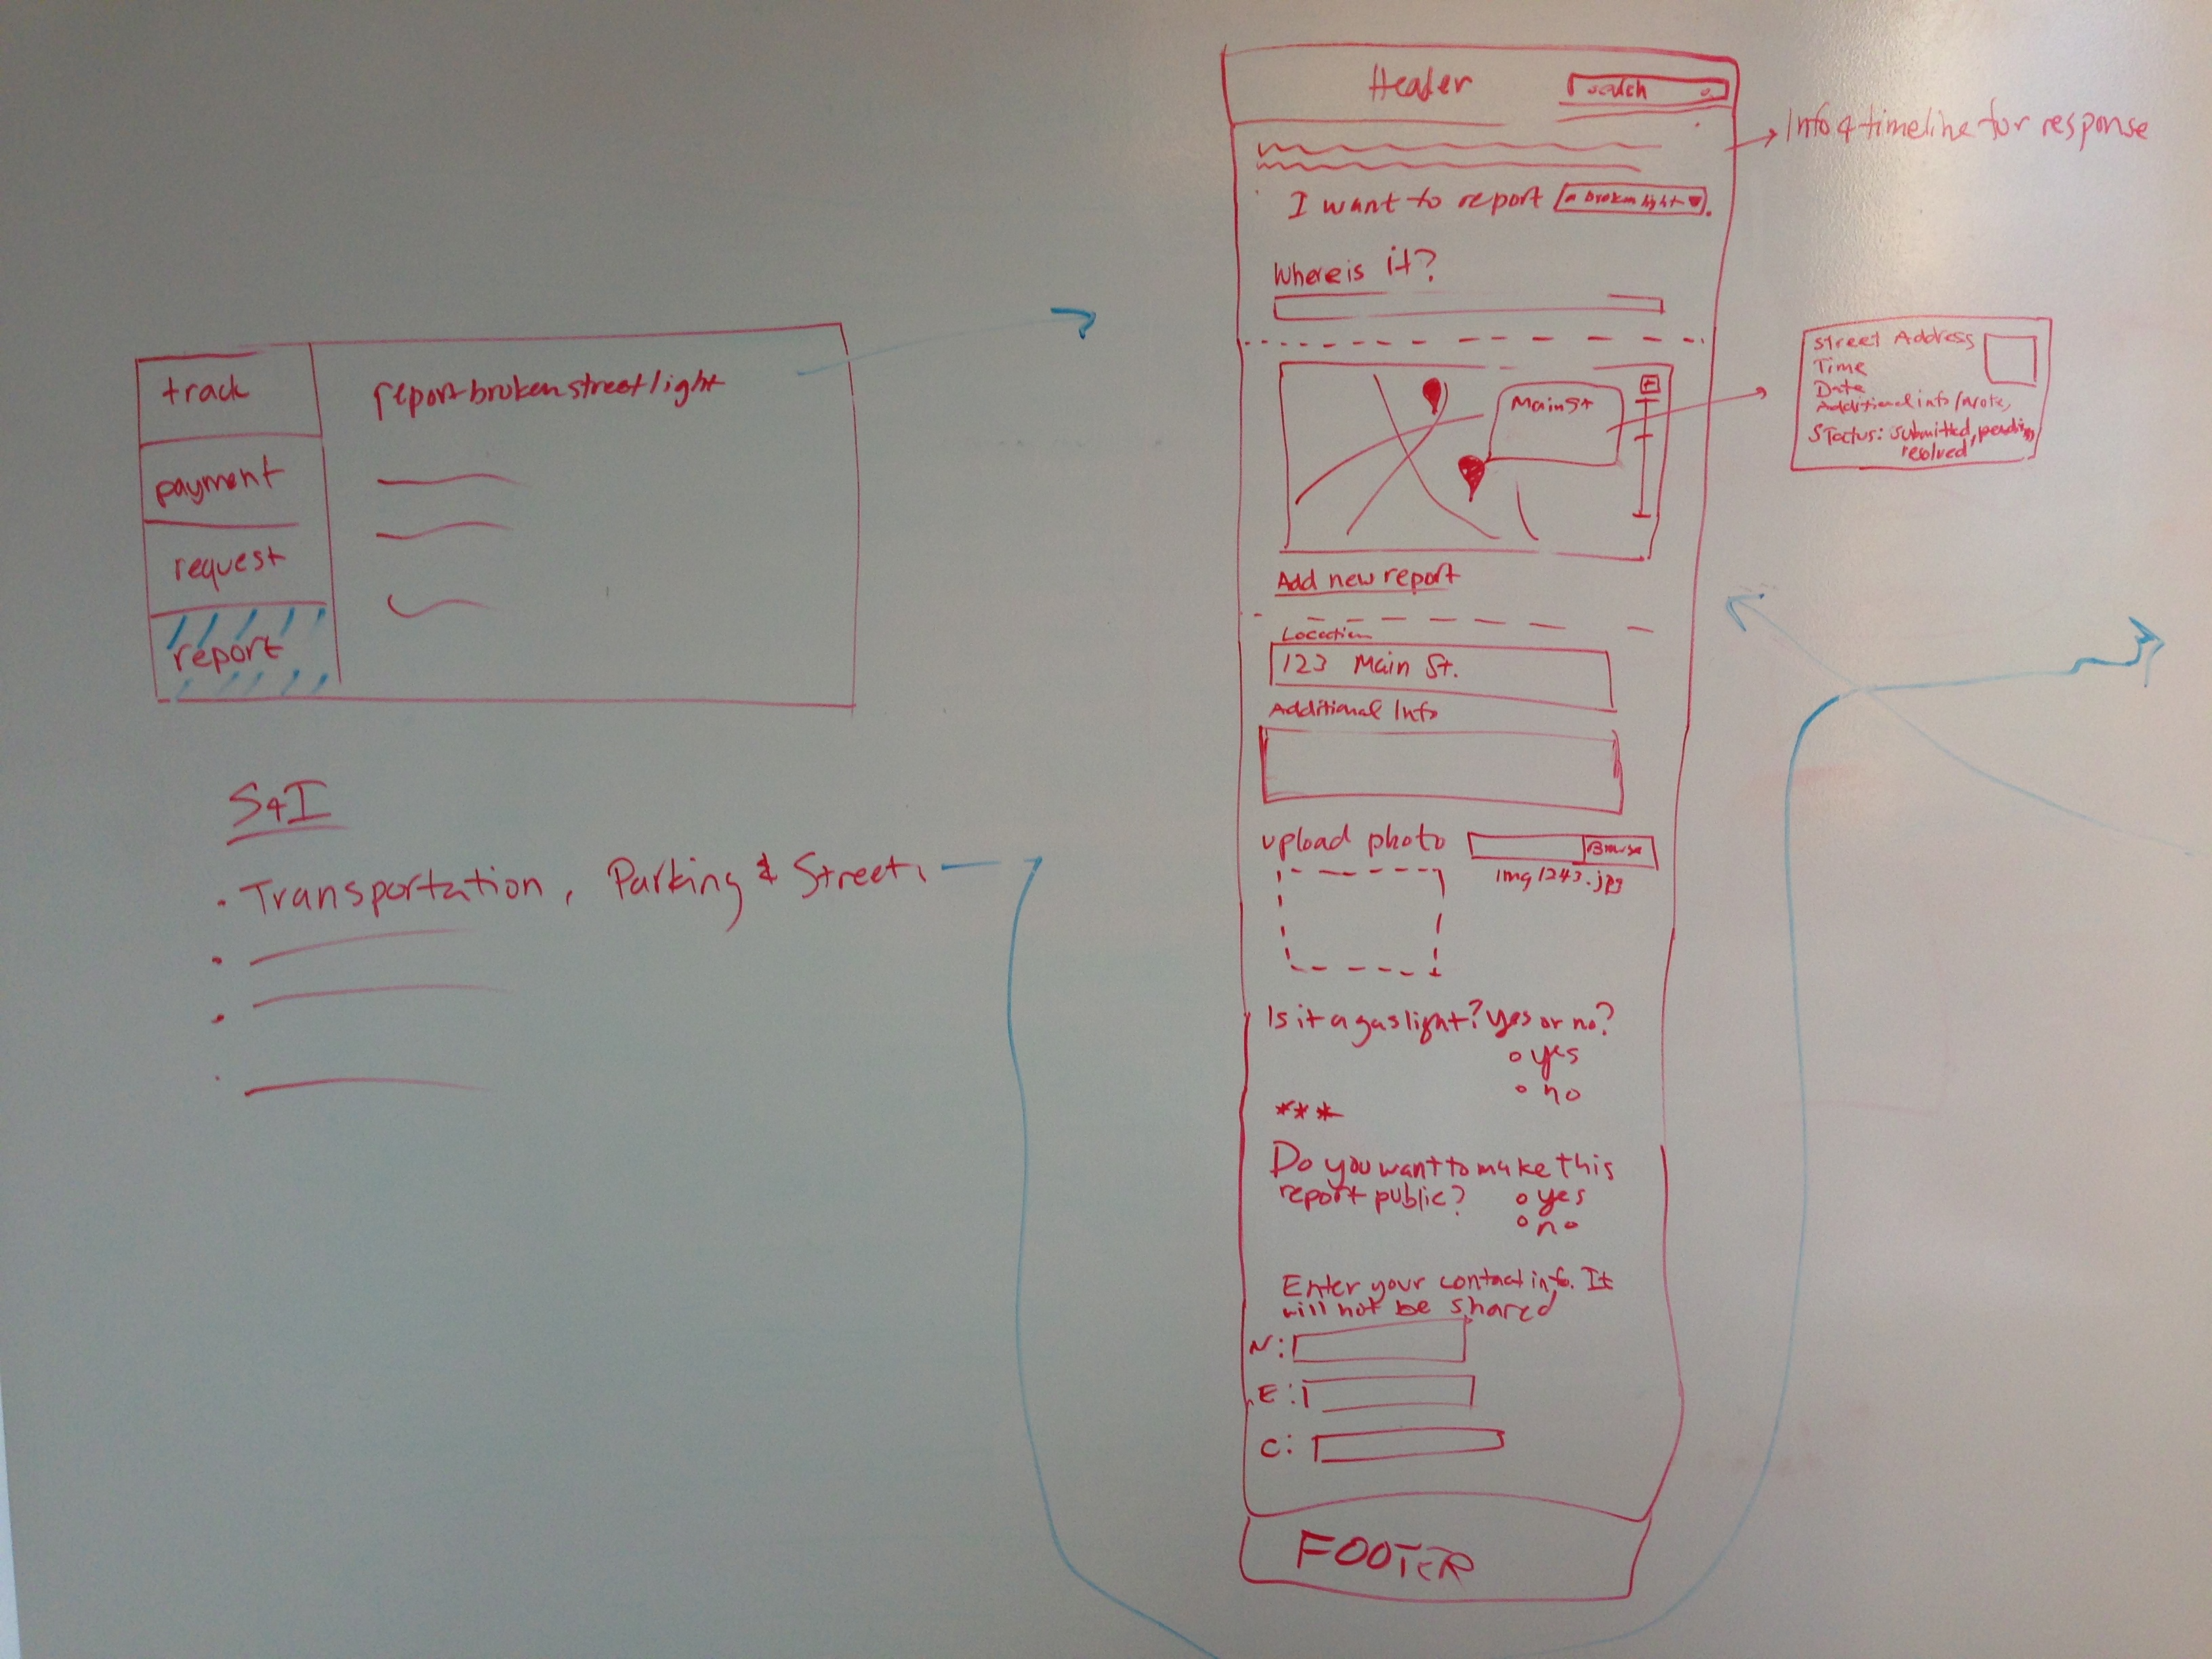 track
payment
request
report
report broken street light
S & I
• Transportation, Parking & Streets
Header
search
Info & timeline for response
I want to report a broken light.
Where is it?
Main St
Street Address
Time
Date
Additional info/note,
Status: submitted, pending,
resolved
Add new report
Location
123 Main St.
Additional Info
upload photo
Browse
img1243.jpg
Is it a gas light? yes or no?
yes
no
***
Do you want to make this
report public?
yes
no
Enter your contact info. It
will not be shared
N:
E:
C:
FOOTER